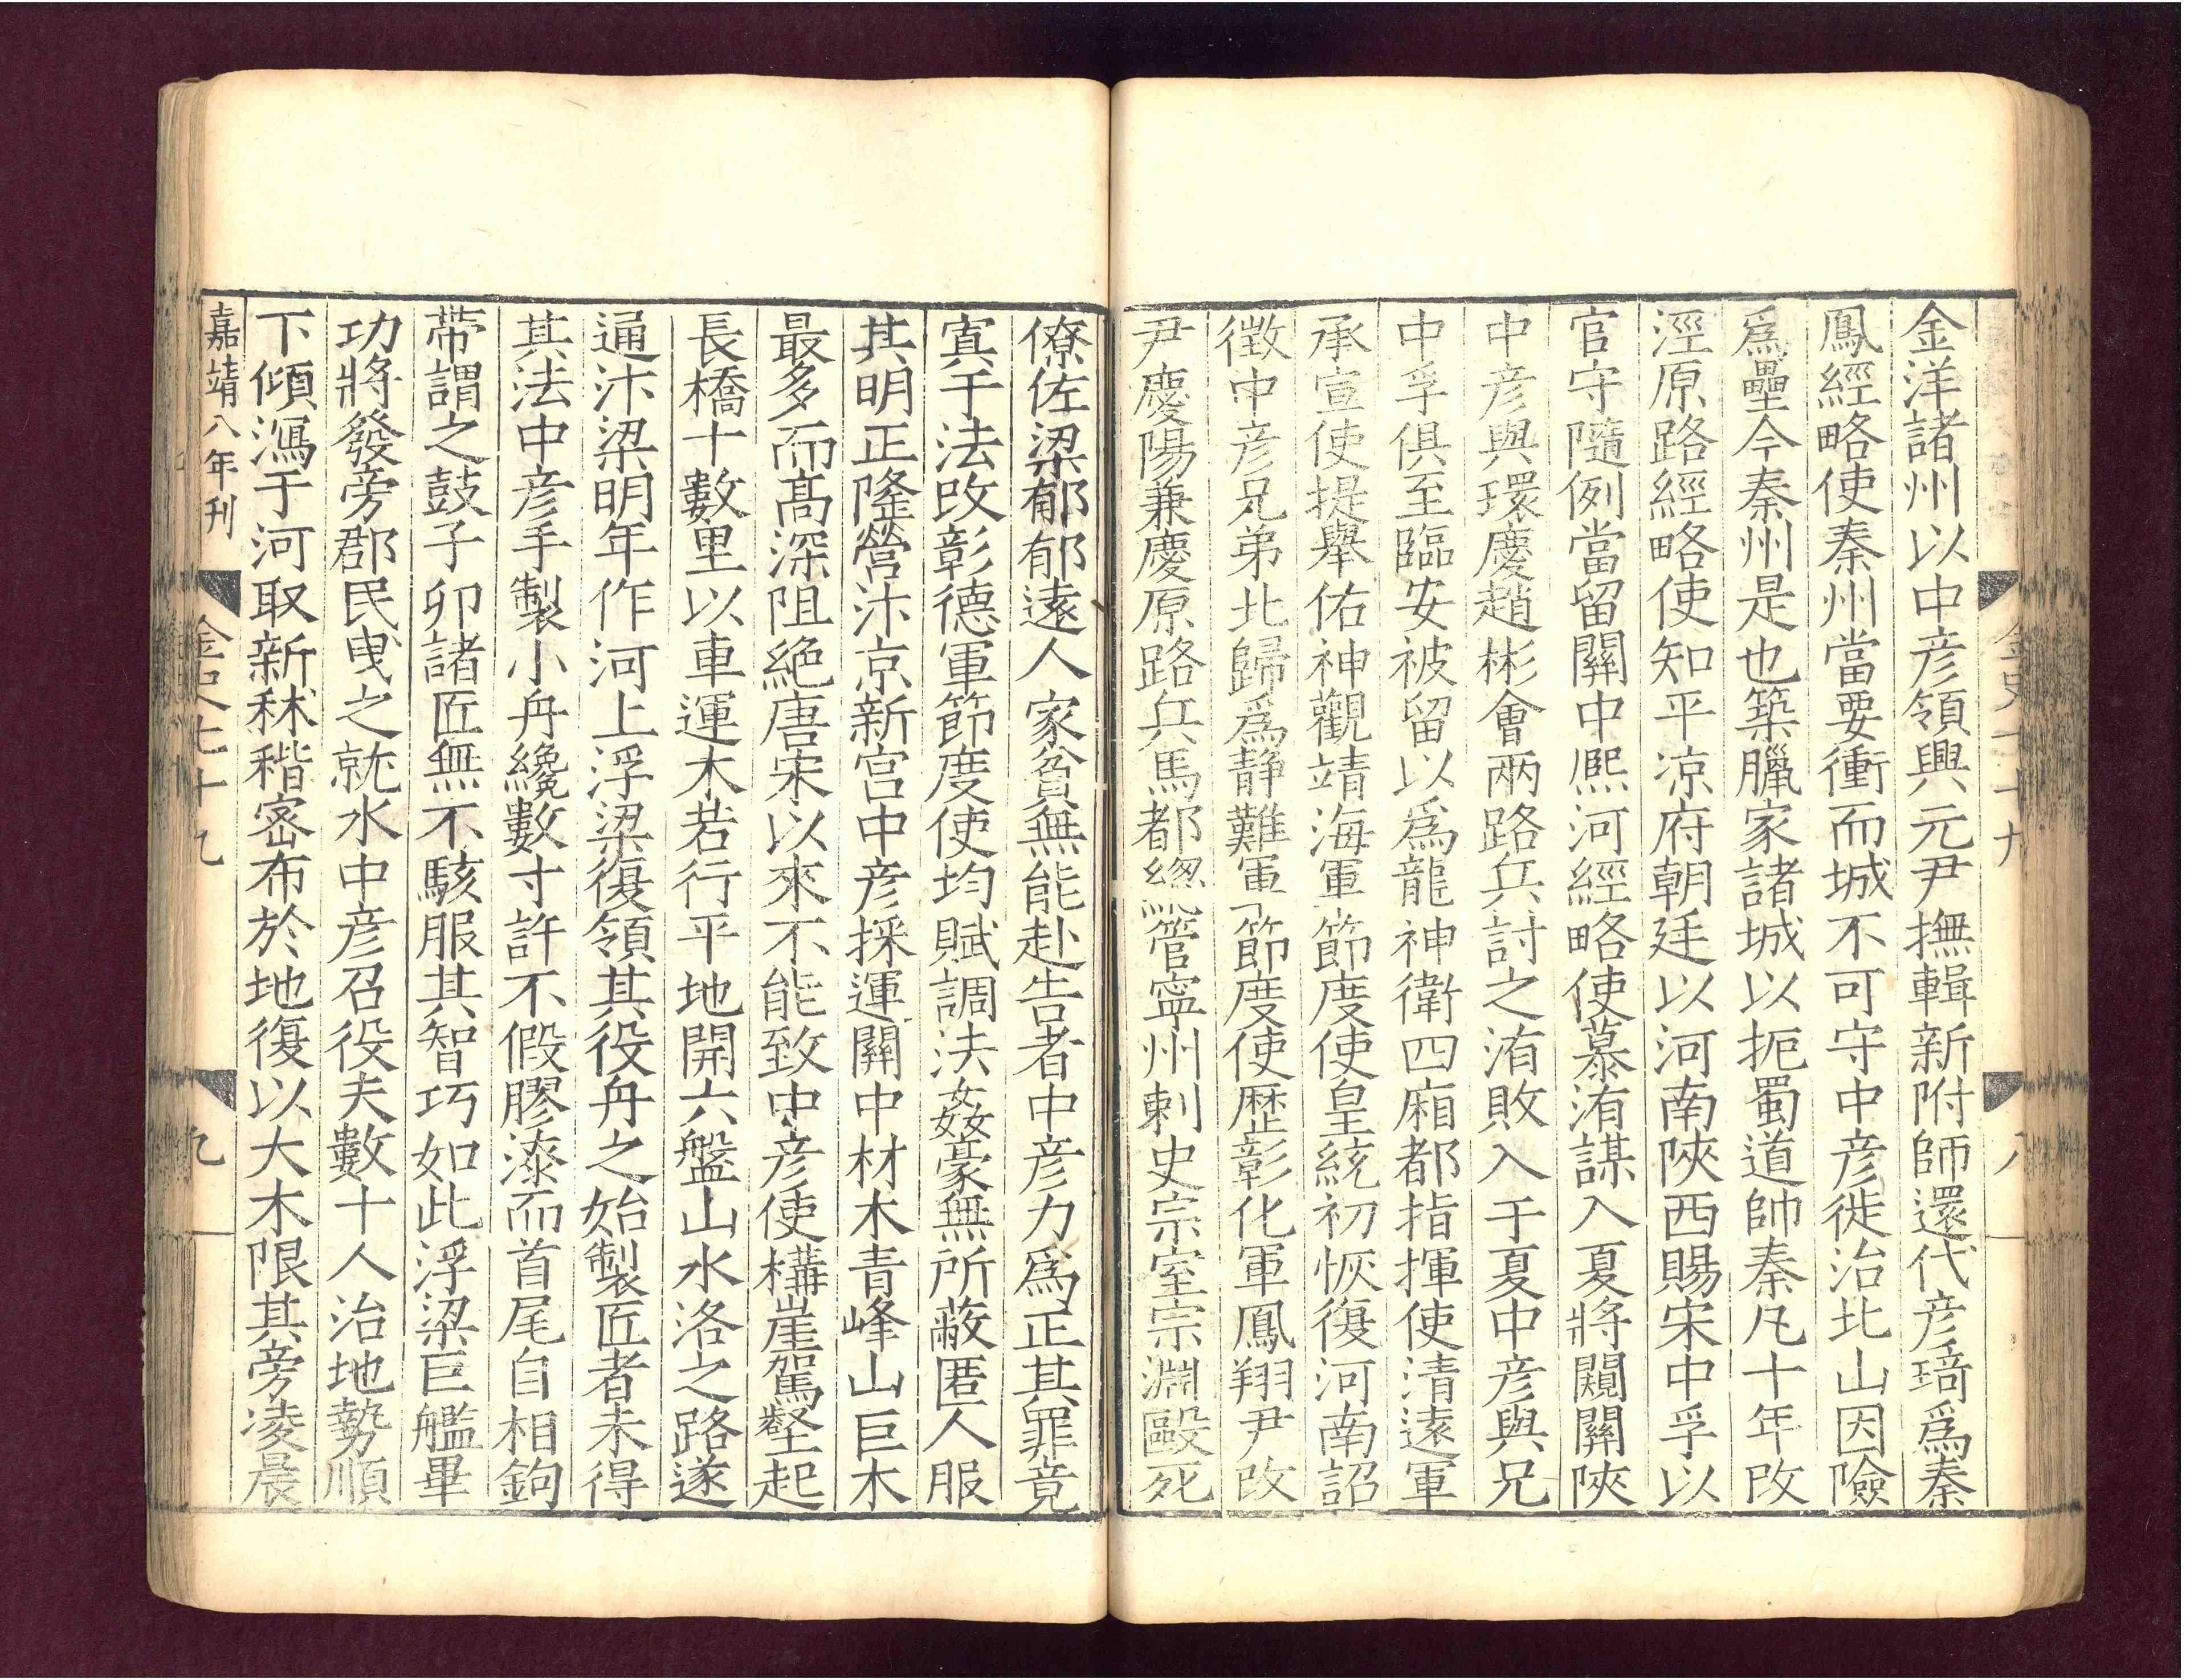 金洋諸州以中彦領興元尹撫輯新附師還代彦琦爲秦
鳳經略使秦州當要衝而城不可守中彦徙治北山因險
爲壘今秦州是也築臘家諸城以扼蜀道帥秦凡十年改
涇原路經略使知平涼府朝廷以河南陝西賜宋中孚以
官守隨例當留關中熈河經略使慕洧謀入夏將闚關陝
中彦與環慶趙彬會兩路兵討之洧敗入于夏中彦與兄
中孚俱至臨安被留以爲龍神衛四廂都指揮使清遠軍
承宣使提舉佑神觀靖海軍節度使皇統初恢復河南詔
徵中彦兄弟北歸爲靜難軍節度使歴彰化軍鳳翔尹改
尹慶陽兼慶原路兵馬都總管寧州刺史宗室宗淵毆死
金史七十九
八
僚佐梁郁郁遠人家貧無能赴告者中彦力爲正其罪竟
寘于法改彰德軍節度使均賦調法姦豪無所蔽匿人服
其明正隆營汴京新宫中彦採運關中材木青峰山巨木
最多而髙深阻絶唐宋以來不能致中彦使構崖駕壑起
長橋十數里以車運木若行平地開六盤山水洛之路遂
通汴梁明年作河上浮梁復領其役舟之始製匠者未得
其法中彦手製小舟纔數寸許不假膠漆而首尾自相鉤
帶謂之鼓子卯諸匠無不駭服其智巧如此浮梁巨艦畢
功將發旁郡民曳之就水中彦召役夫數十人治地勢順
下傾瀉于河取新秫稭密布於地復以大木限其旁凌晨
嘉靖八年刊
金史七十九
九